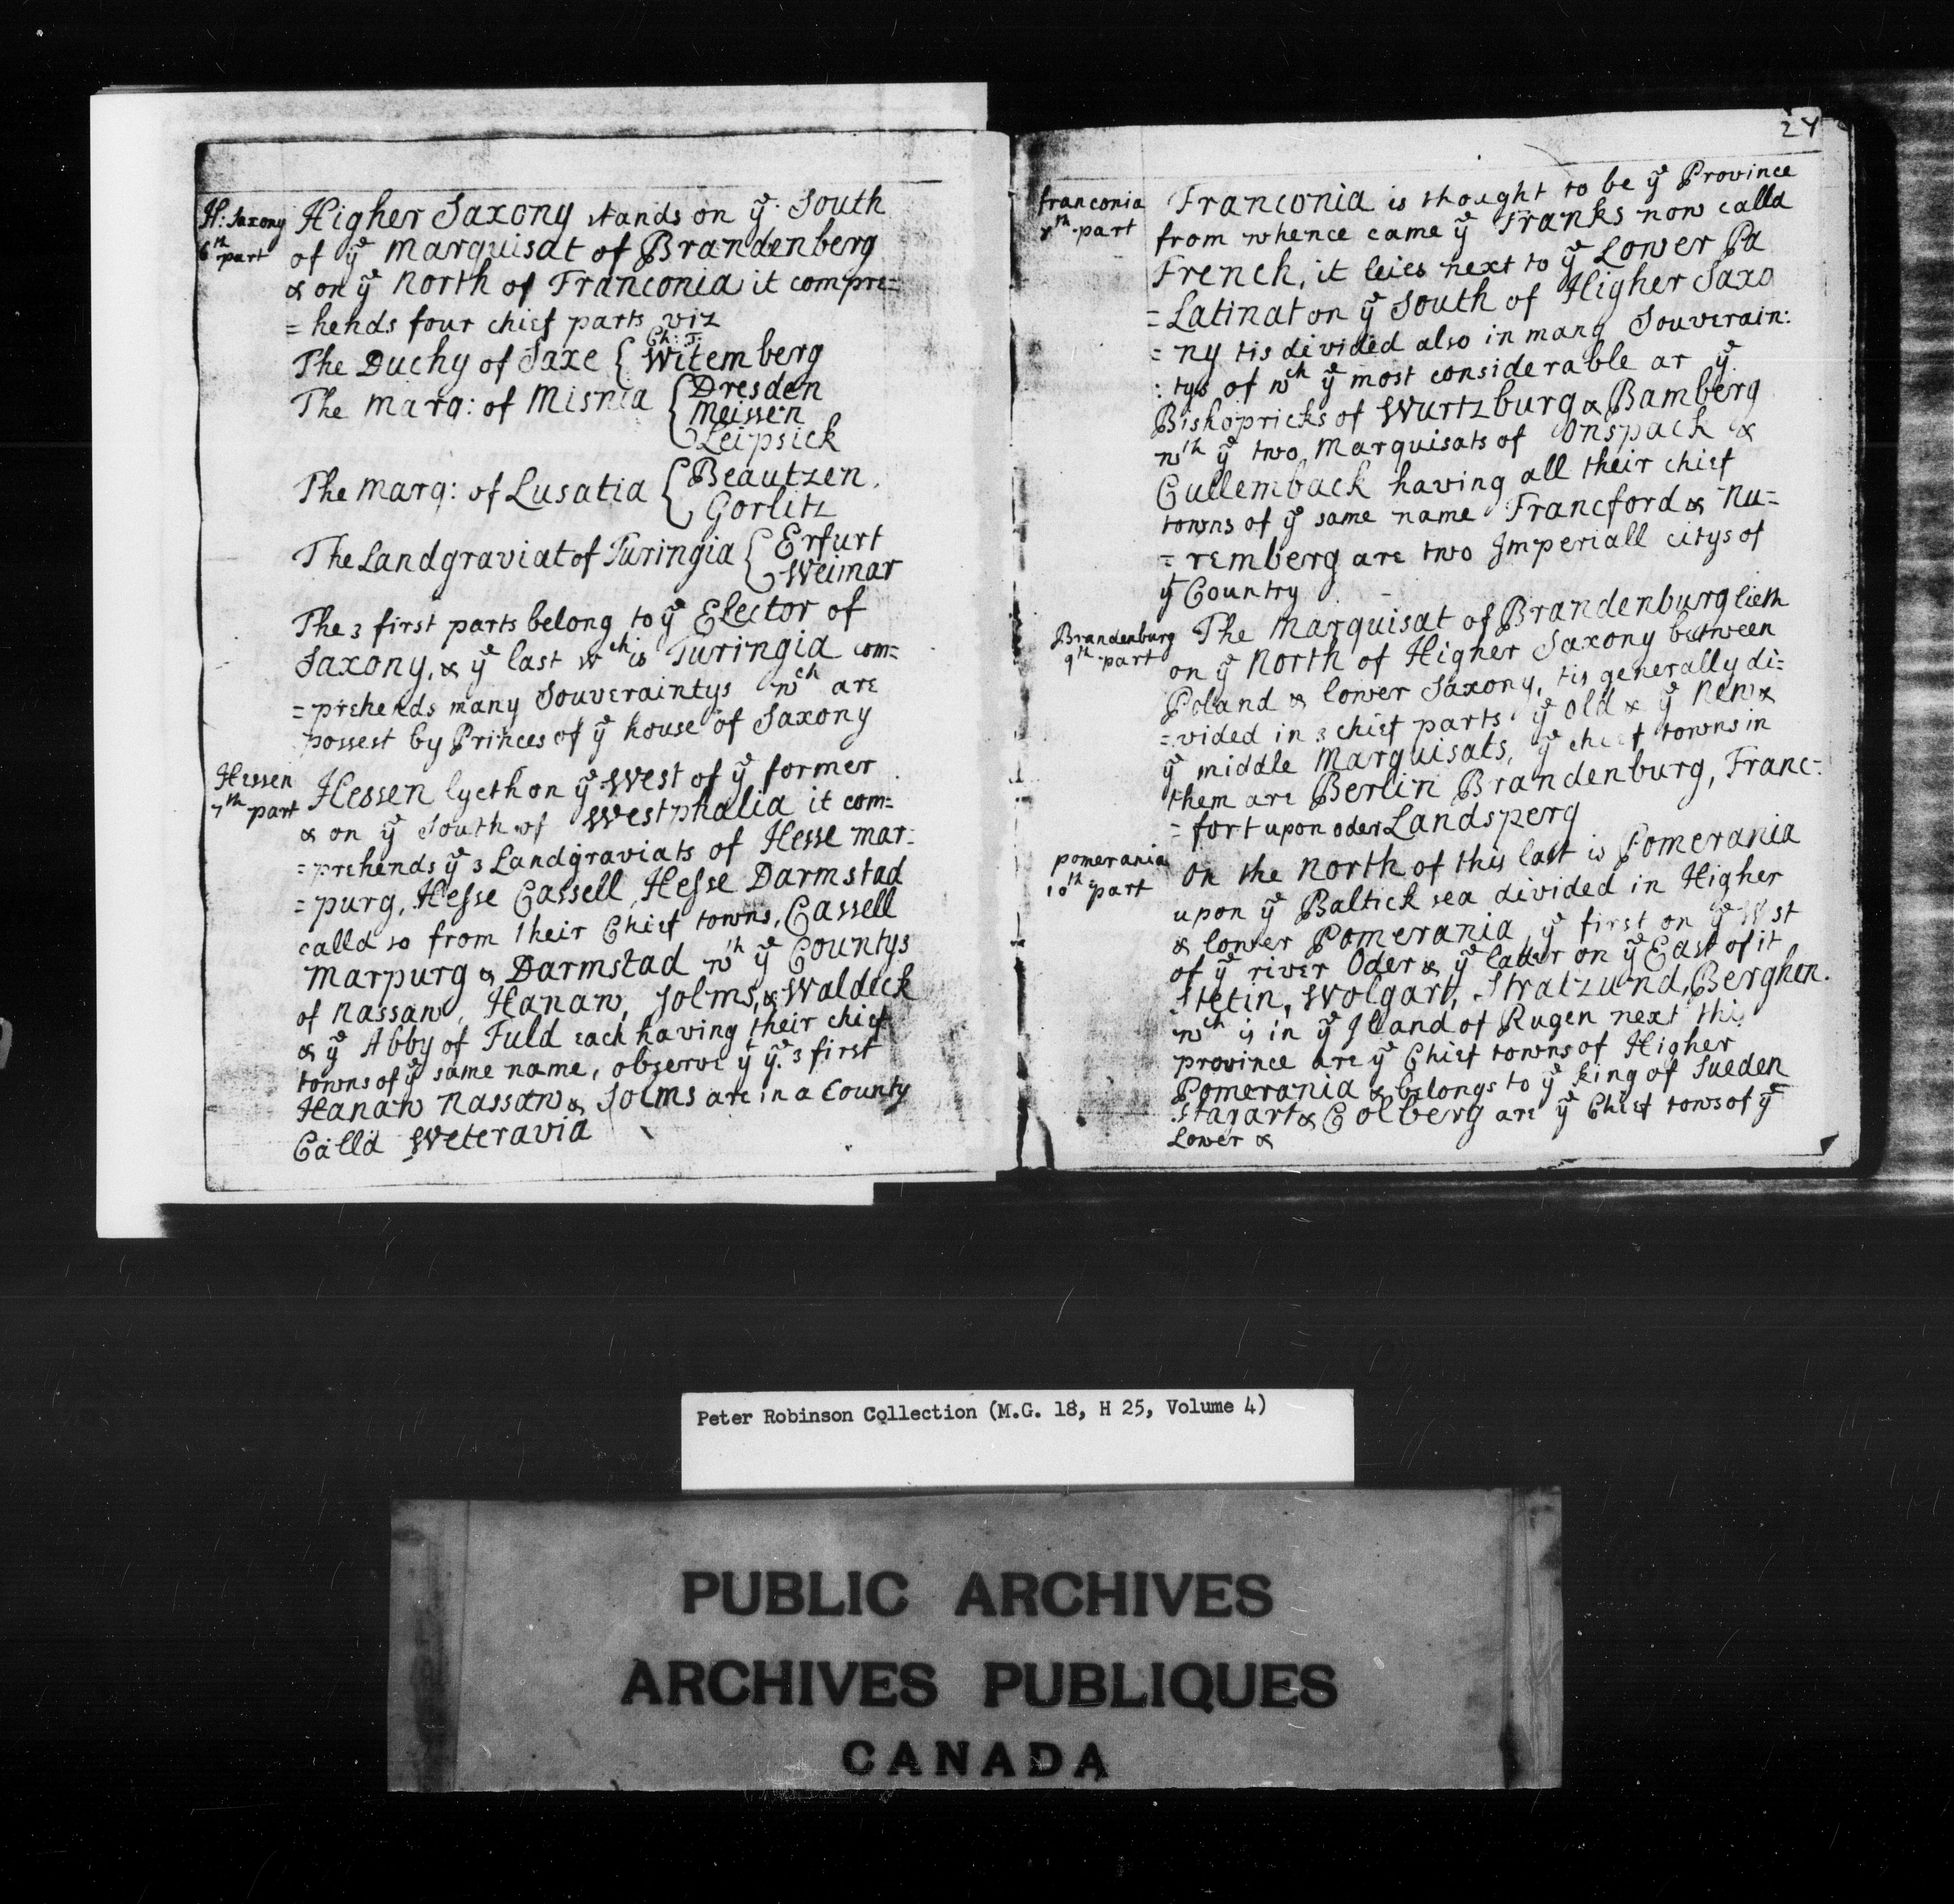 H: Saxony
6th part
Higher Saxony stands on ye South
of ye Marquisat of Brandenberg
& on ye North of Franconia it compre=
=hends four chief parts viz
Ch: T:
The Duchy of Saxe { Witemberg
The Marq: of Misnia { Dresden
Meissen
Leipsick
The Marq: of Lusatia { Beautzen.
Gorlitz
The Landgraviat of Turingia { Erfurt
Weimar
The 3 first parts belong to ye Elector of
Saxony, & ye last wch is Turingia com=
=prehends many Souveraintys wch are
possest by Princes of ye house of Saxony
Hessen
7th part
Hessen lyeth on ye West of ye former
& on ye South of Westphalia it com=
=prehends ye 3 Landgraviats of Hesse Mar:
=purg, Hesse Cassell, Hesse Darmstad
calld so from their Chief towns, Cassell
Marpurg & Darmstad wth ye Countys
of Nassaw, Hanaw, Solms, & Waldeck
& ye Abby of Fuld each having their chief
towns of ye same name, observe yt ye 3 first
Hanaw Nassaw & Solms are in a County
Calld Weteravia
24
franconia
8th part
Franconia is thought to be ye Province
from whence came ye Franks now calld
French, it leies next to ye Lower Pa
=Latinat on ye South of Higher Saxo
=ny tis divided also in many Souverain:
:tys of wch ye most considerable ar ye
Bishopricks of Wurtzburg & Bamberg
wth ye two Marquisats of Onspack &
Cullemback having all their chief
towns of ye same name Francford & Nu=
=remberg are two Imperiall citys of
yt Country
Brandenburg
9th part
The Marquisat of Brandenburg lieth
on ye North of Higher Saxony between
Poland & lower Saxony, tis generally di=
=vided in 3 chief parts ye old & ye New &
ye middle Marquisats, ye chief towns in
them are Berlin Brandenburg, Franc=
=fort upon oder Landsperg
pomerania
10th part
On the North of this last is Pomerania
upon ye Baltick sea divided in Higher
& lower Pomerania, ye first on ye West
of ye river Oder & ye latter on ye East of it
Stetin, Wolgart, Stratzund, Berghen.
wch is in ye Iland of Rugen next this
province are ye Chief towns of Higher
Pomerania & belongs to ye king of Sueden
Stagart & Colberg are ye Chief towns of ye
Lower &
Peter Robinson Collection (M.G. 18, H 25, Volume 4)
PUBLIC ARCHIVES
ARCHIVES PUBLIQUES
CANADA